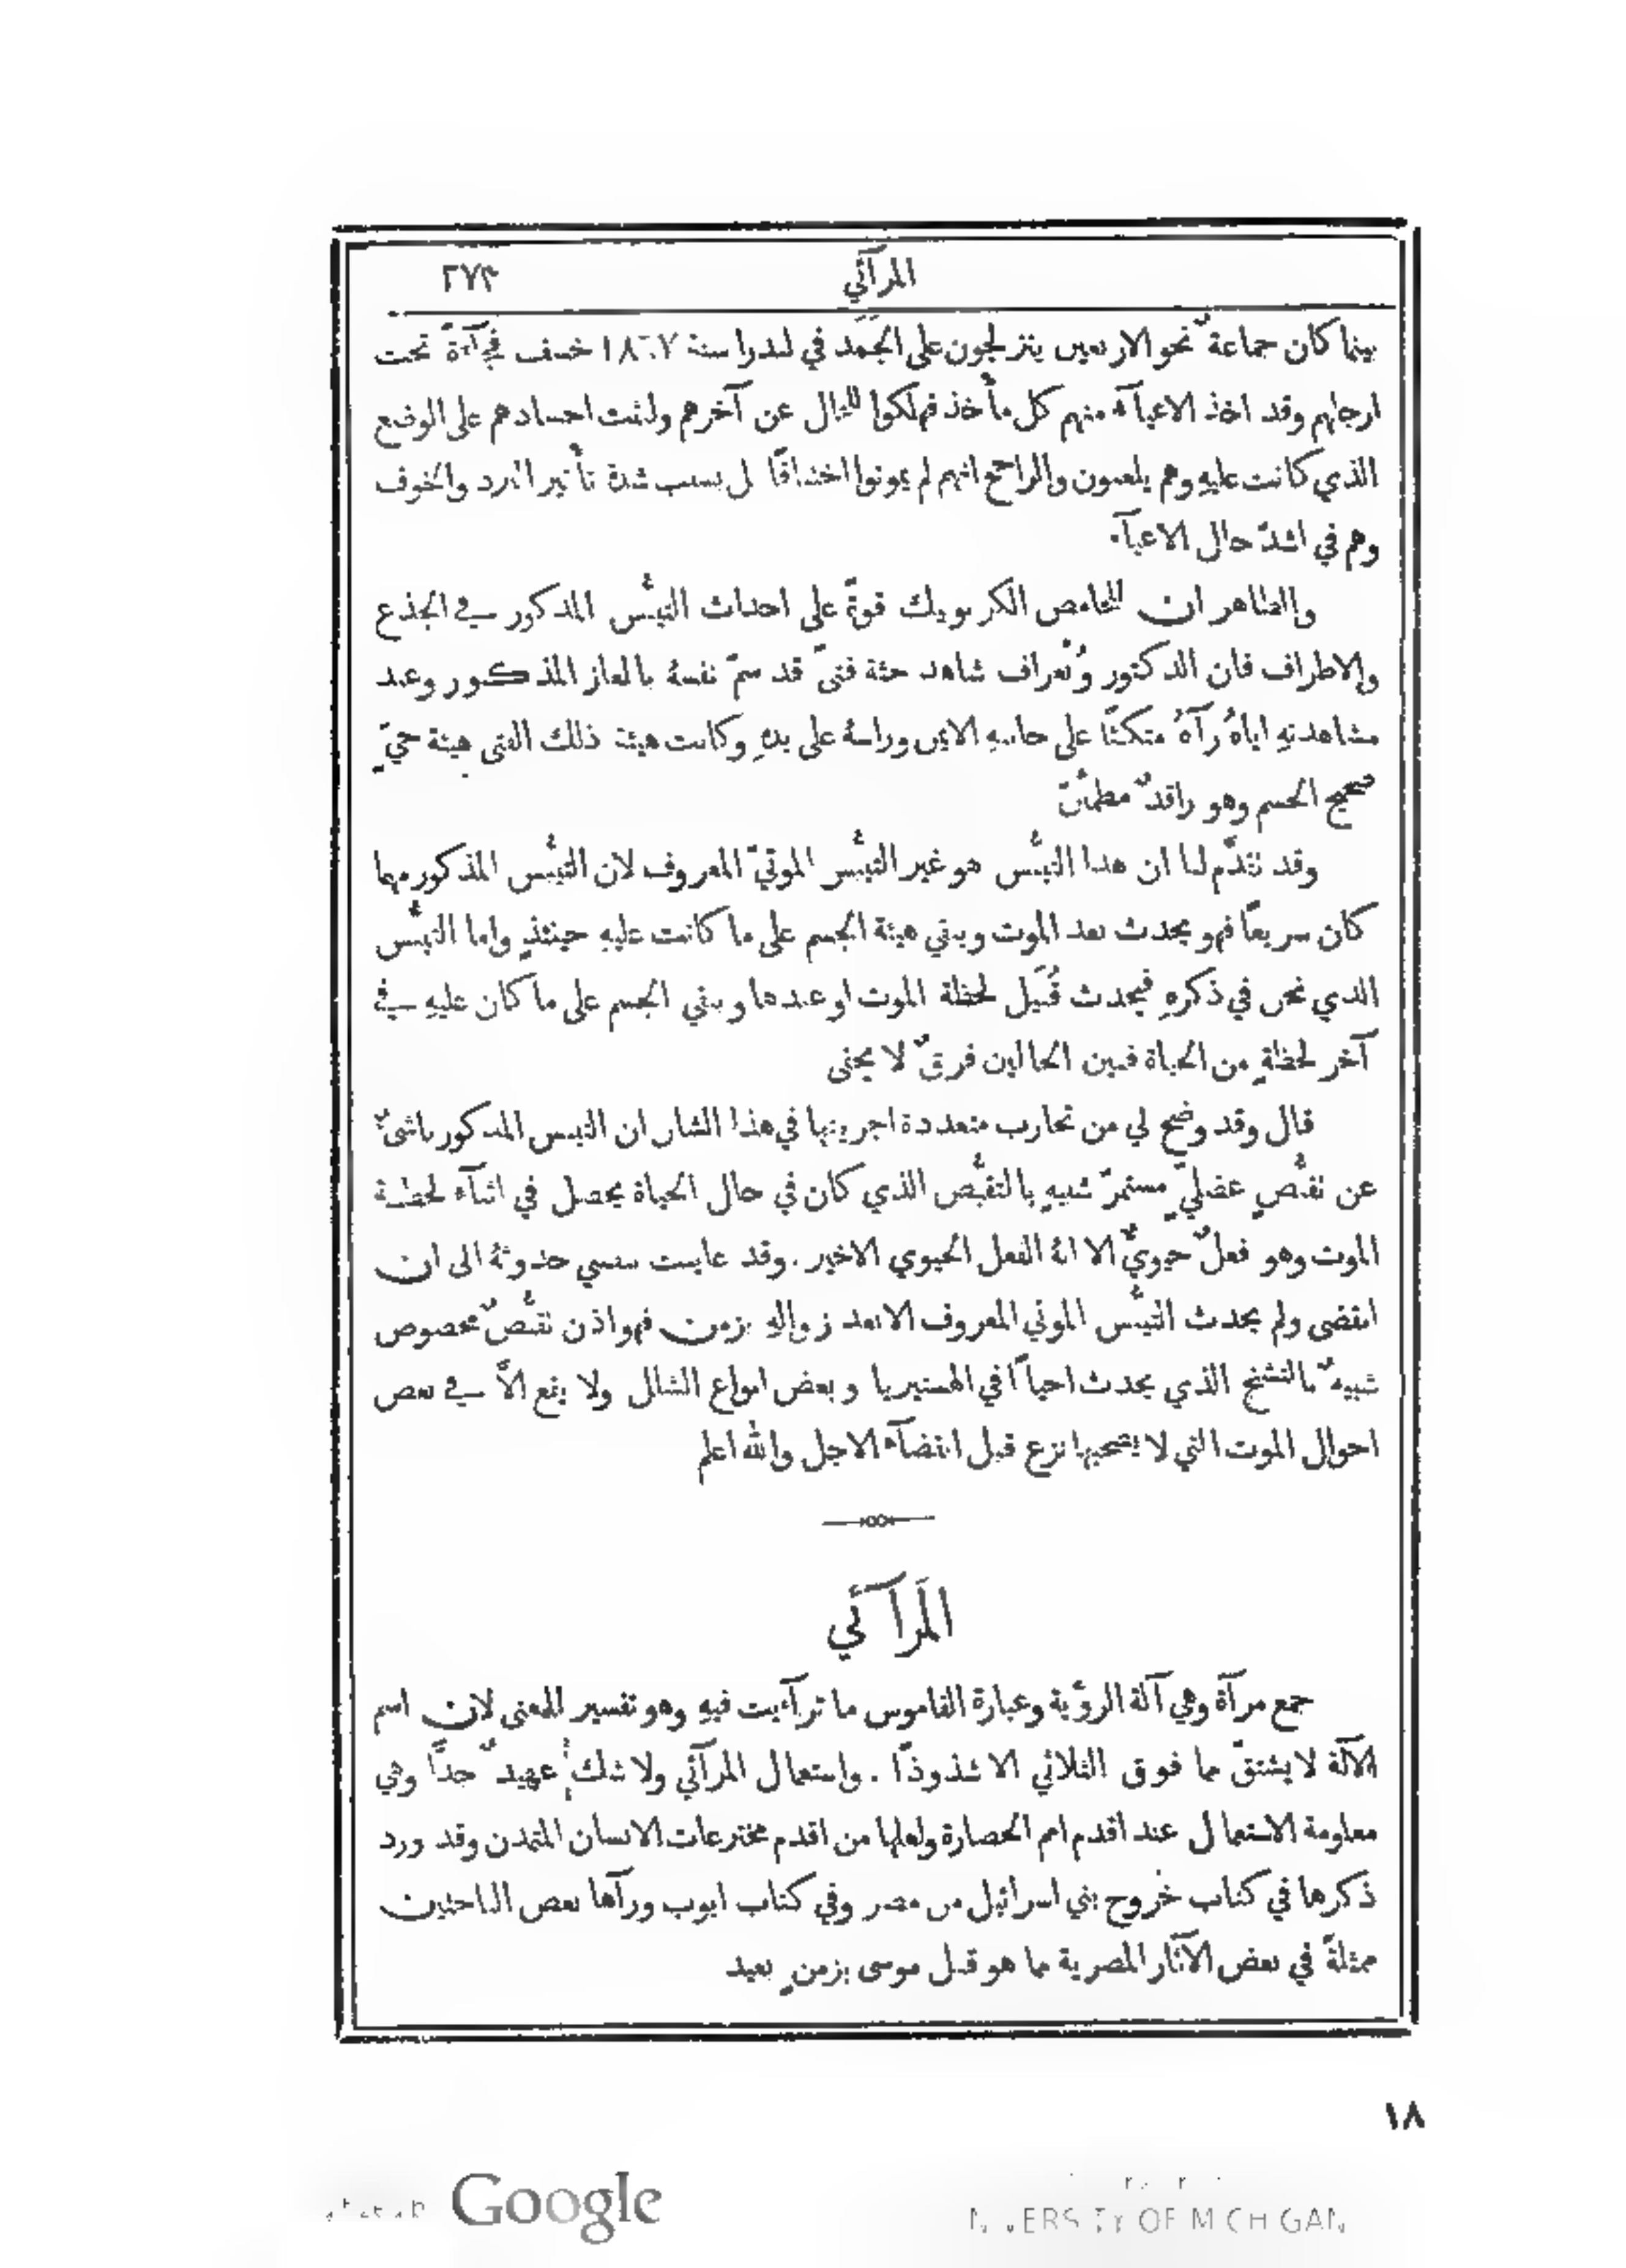 المرآئي
٢٧٣
بينما كان جماعةٌ نحو الاربعين يتزلجون على الجَمَد في لندرا سنة ١٨٦٧ خسف فجآءةً تحت
ارجلهم وقد اخذ الاعيآء منهم كل مأخذ فهلكوا للحال عن آخرهم ولبثت اجسادهم على الوضع
الذي كانت عليهِ وهم يلعبون والراجح انهم لم يموتوا اختناقًا بل بسبب شدة تأثير البرد والخوف
وهم في اشدّ حال الاعيآء
والظاهر ان للحامض الكربونيك قوةً على احداث التيبُّس المذكور في الجذع
والاطراف فان الدكتور شاهد جثة فتىً قد سمّ نفسهُ بالغاز المذكور وعند
مشاهدتهِ اياهُ رآهُ متكئًا على جانبهِ الايمن وراسهُ على يدهِ وكانت هيئة ذلك الفتى هيئة حيٍّ
صحيح الجسم وهو راقدٌ مطمئنّ
وقد تقدّم لنا ان هذا التيبُّس هو غير التيبُّس الموتيّ المعروف لان التيبُّس المذكور مهما
كان سريعًا فهو يحدث بعد الموت ويبقي هيئة الجسم على ما كانت عليهِ حينئذٍ واما التيبُّس
الذي نحن في ذكرهِ فيحدث قُبَيل لحظة الموت او عندها ويبقي الجسم على ما كان عليهِ في
آخر لحظةٍ من الحياة فبين الحالين فرقٌ لا يخفى
قال وقد وضح لي من تجارب متعددة اجريتها في هذا الشان ان التيبس المذكور ناشئٌ
عن تقبُّضٍ عضليٍّ مستمرّ شبيهٍ بالتقبُّض الذي كان في حال الحياة يحصل في اثنآء لحظة
الموت وهو فعلٌ حيويٌّ الا انهُ الفعل الحيوي الاخير. وقد عاينت بنفسي حدوثهُ الى ان
انقضى ولم يحدث التيبُّس الموتي المعروف الا بعد زوالهِ بزمن فهو اذن تقبُّضٌ مخصوص
شبيهٌ بالتشنج الذي يحدث احيانًا في الهستيريا وبعض انواع الشلل ولا يقع الَّا في بعض
احوال الموت التي لا يصحبها نزع قبل انقضآء الاجل والله اعلم
المَرآئي
جمع مرآة وهي آلة الرؤية وعبارة القاموس ما ترآءيت فيهِ وهو تفسير للمعنى لان اسم
الآلة لا يشتقّ مما فوق الثلاثي الا شذوذًا. واستعمال المرآئي ولا شك عهيدٌ جدًّا وهي
معلومة الاستعمال عند اقدم امم الحضارة ولعلها من اقدم مخترعات الانسان المتمدن وقد ورد
ذكرها في كتاب خروج بني اسرائيل من مصر وفي كتاب ايوب ورآها بعض الباحثين
ممثلةً في بعض الآثار المصرية مما هو قبل موسى بزمنٍ بعيد
١٨
Google
UNIVERSITY OF MICHIGAN